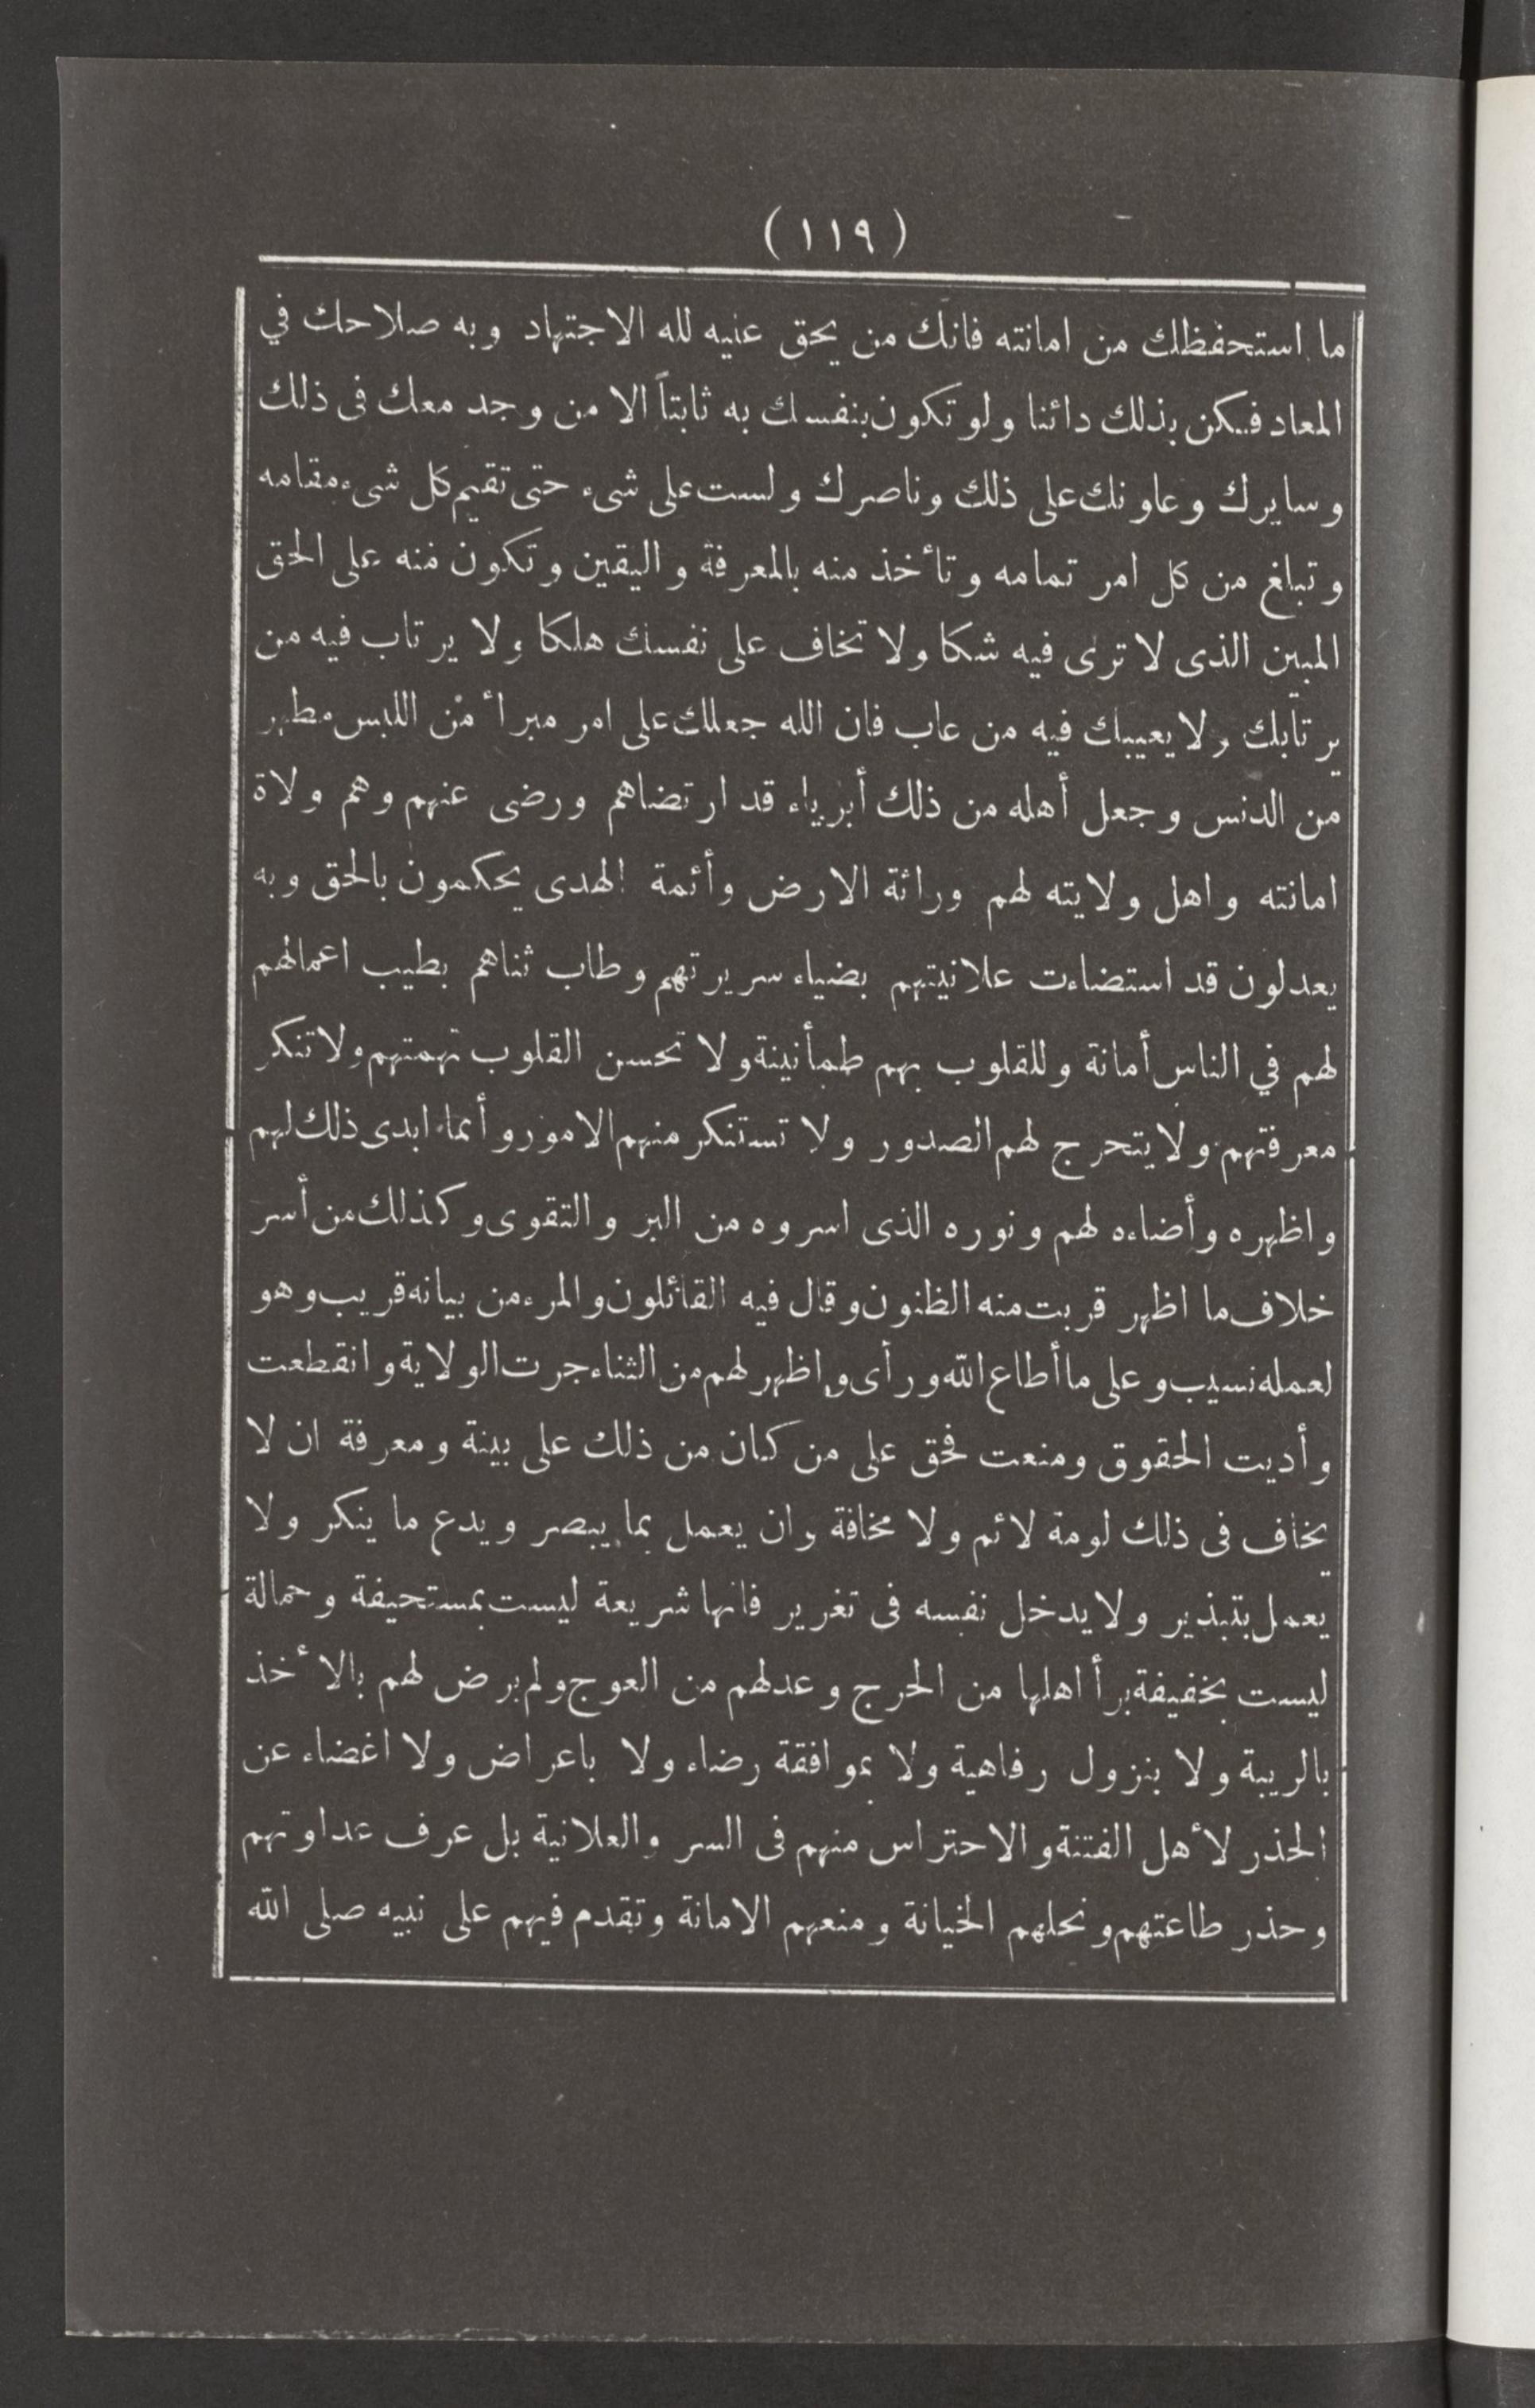 (١١٩)
ما استحفظك من امانته فانك من يحق عليه لله الاجتهاد وبه صلاحك في
المعاد فكن بذلك دائنا ولو تكون بنفسك به ثابتاً الا من وجد معك فى ذلك
وسايرك وعاونك على ذلك وناصرك ولست على شىء حتى تقيم كل شىء مقامه
وتبلغ من كل امر تمامه وتأخذ منه بالمعرفة واليقين وتكون منه على الحق
المبين الذى لا ترى فيه شكا ولا تخاف على نفسك هلكا ولا يرتاب فيه من
يرتابك ولا يعيبك فيه من عاب فان الله جعلك على امر مبرأ من اللبس مطهر
من الدنس وجعل أهله من ذلك أبرياء قد ارتضاهم ورضى عنهم وهم ولاة
امانته واهل ولايته لهم وراثة الارض وأئمة الهدى يحكمون بالحق وبه
يعدلون قد استضاءت علانيتهم بضياء سريرتهم وطاب ثناهم بطيب اعمالهم
لهم في الناس أمانة وللقلوب بهم طمأنينة ولا تحسن القلوب تهمتهم ولا تنكر
معرفتهم ولا يتحرج لهم الصدور ولا تستنكر منهم الامور وأنما ابدى ذلك لهم
واظهره وأضاءه لهم ونوره الذى اسروه من البر والتقوى وكذلك من أسر
خلاف ما اظهر قربت منه الظنون وقال فيه القائلون والمرء من بيانه قريب وهو
لعمله نسيب وعلى ما أطاع الله ورأى واظهر لهم من الثناء جرت الولاية وانقطعت
وأديت الحقوق ومنعت فحق على من كان من ذلك على بينة ومعرفة ان لا
يخاف فى ذلك لومة لائم ولا مخافة وان يعمل بما يبصر ويدع ما ينكر ولا
يعمل بتبذير ولا يدخل نفسه فى تغرير فانها شريعة ليست بمستحيفة وحمالة
ليست بخفيفة برأ اهلها من الحرج وعدلهم من العوج ولم يرض لهم بالأخذ
بالريبة ولا بنزول رفاهية ولا بموافقة رضاء ولا باعراض ولا اغضاء عن
الحذر لأهل الفتنة والاحتراس منهم فى السر والعلانية بل عرف عداوتهم
وحذر طاعتهم ونحلهم الخيانة ومنعهم الامانة وتقدم فيهم على نبيه صلى الله